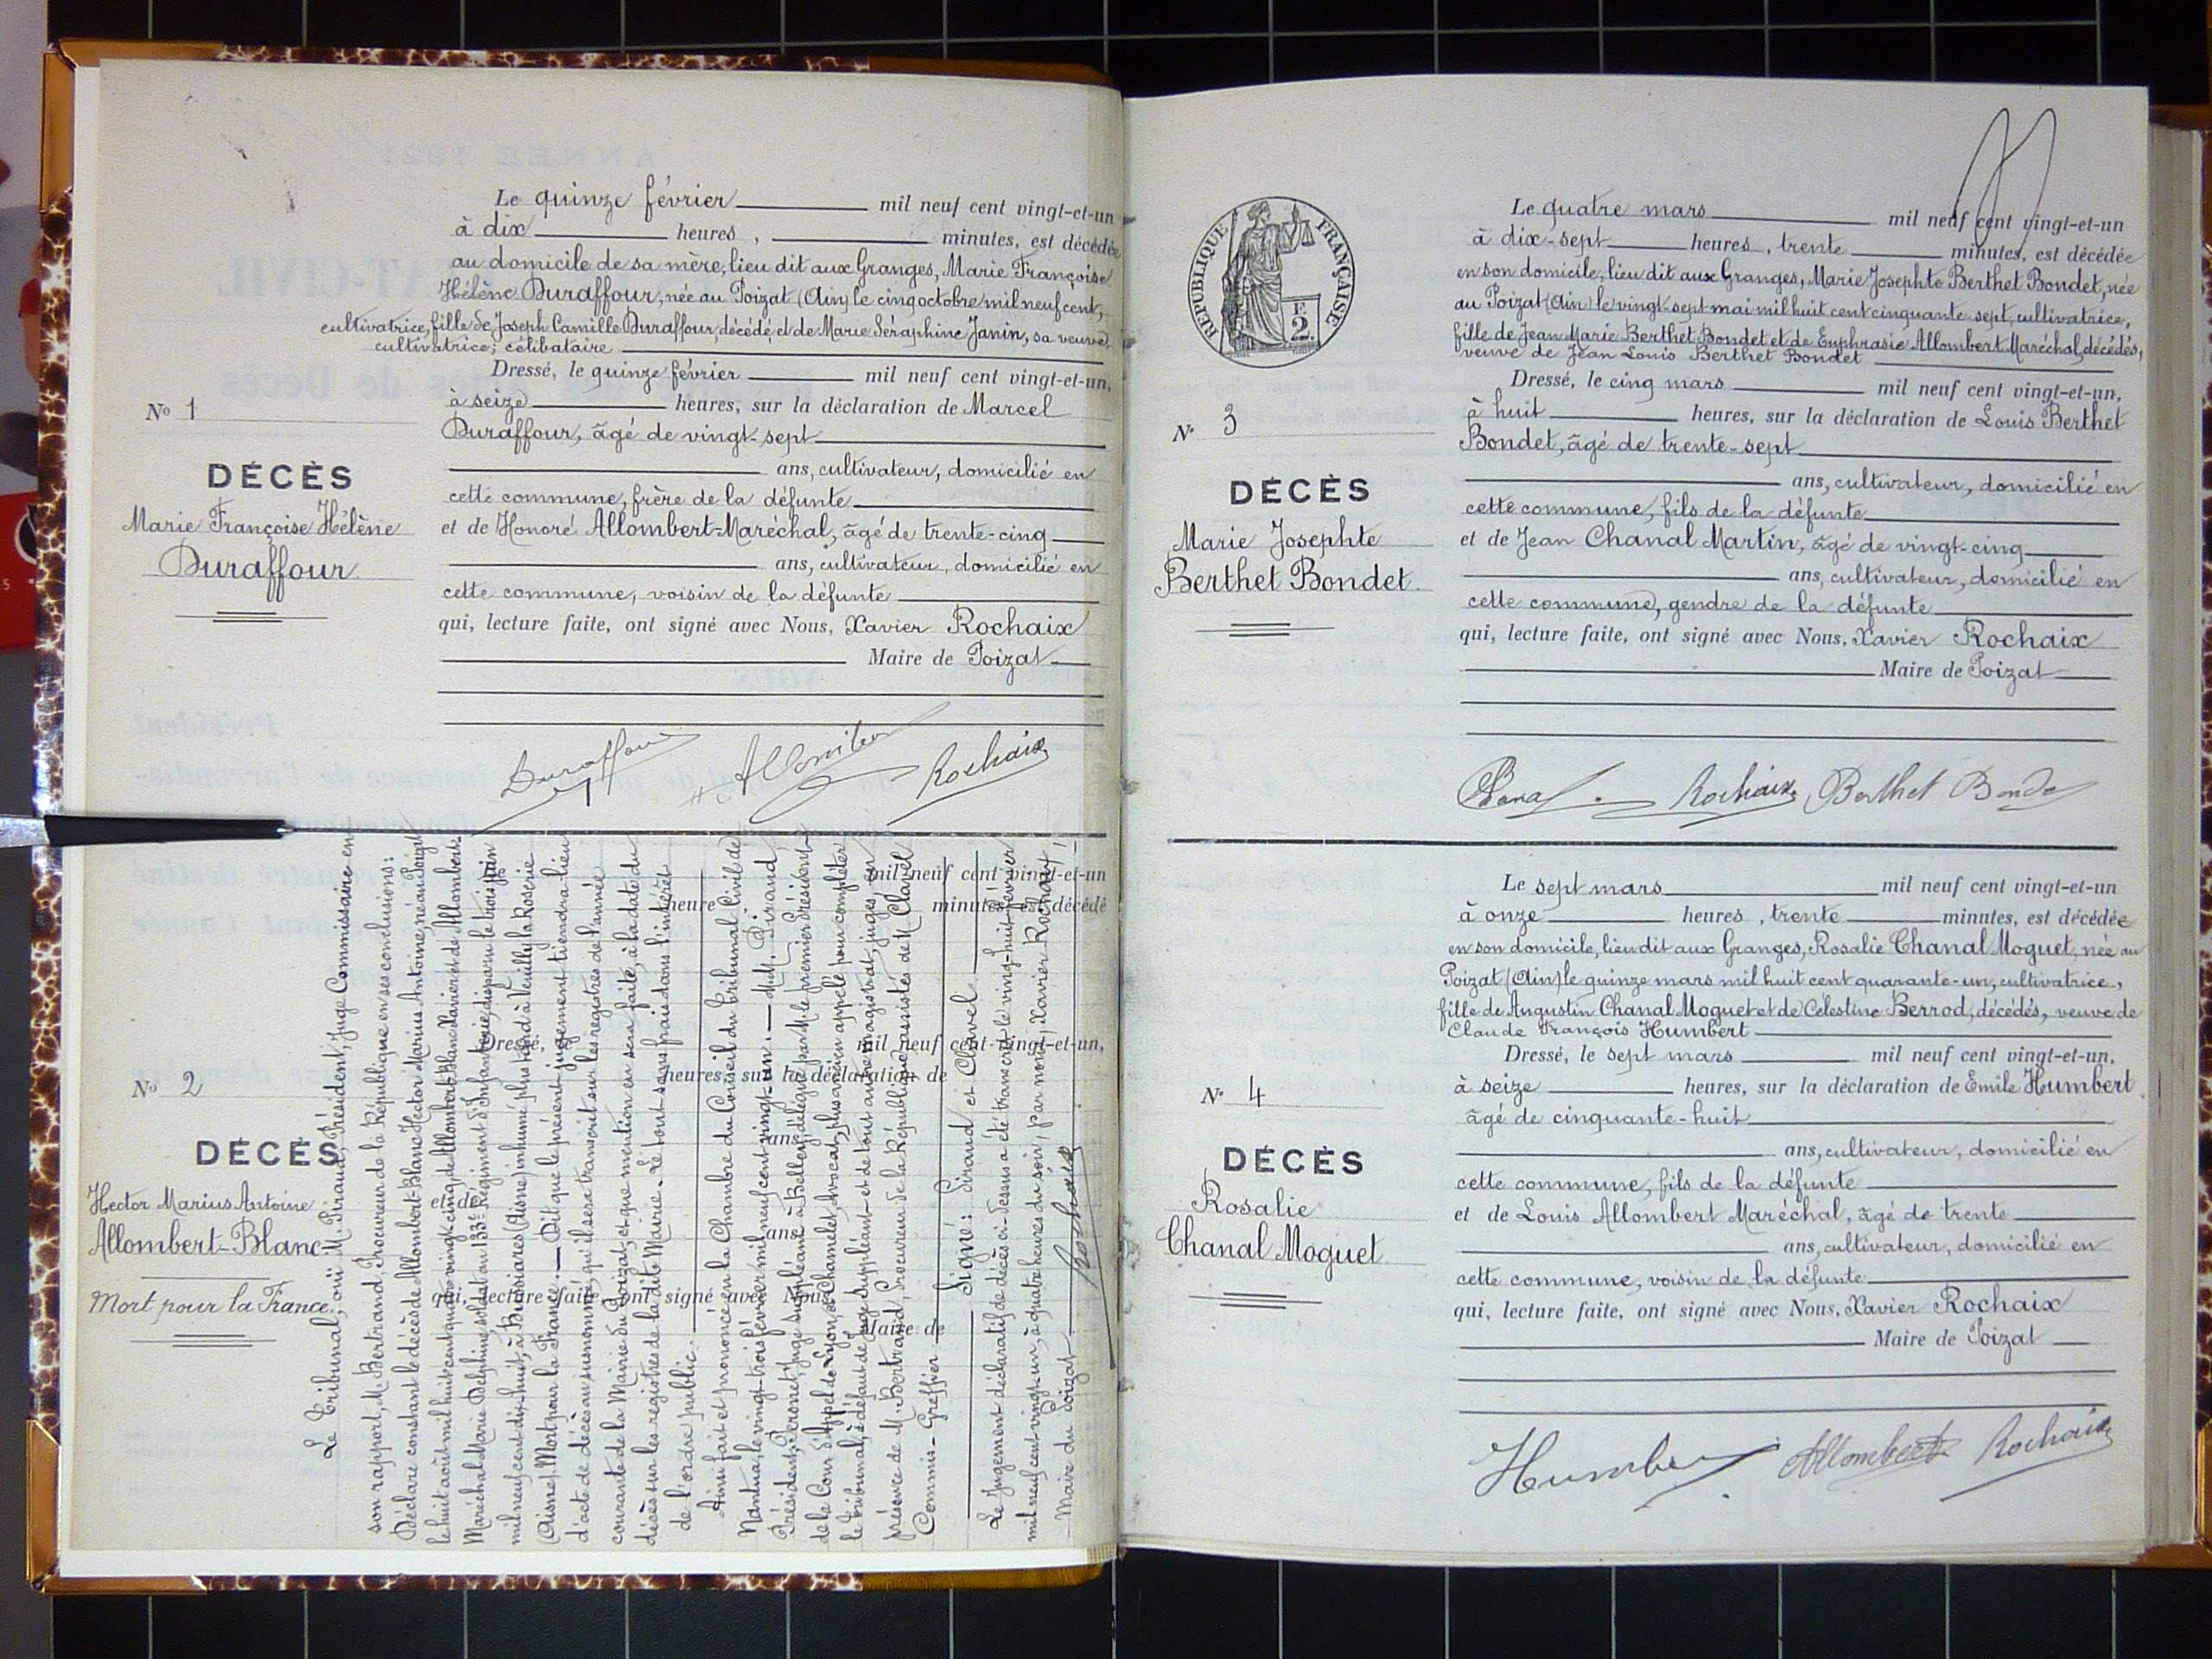 Le quinze février mil neuf cent vingt-et-un
à dix heures, minutes, est décédée
au domicile de sa mère, lieu dit aux Granges, Marie Françoise
Hélène Duraffour, née au Poizat (Ain) le cinq octobre mil neuf cent,
cultivatrice, fille de Joseph Camille Duraffour, décédé, et de Marie Séraphine Janin, sa veuve,
cultivatrice; célibataire
Dressé, le quinze février mil neuf cent vingt-et-un,
à seize heures, sur la déclaration de Marcel
Duraffour, âgé de vingt-sept
ans, cultivateur, domicilié en
cette commune, frère de la défunte
et de Honoré Allombert-Maréchal, âgé de trente-cinq
ans, cultivateur, domicilié en
cette commune, voisin de la défunte
qui, lecture faite, ont signé avec Nous, Xavier Rochaix
Maire de Poizat
No 1
DÉCÈS
Marie Françoise Hélène
Duraffour
Duraffour Rochaix
No 2
DÉCÈS
Hector Marius Antoine
Allombert-Blanc
Mort pour la France.
mil neuf cent vingt-et-un
heure, minutes, est décédé
Dressé, mil neuf cent vingt-et-un,
heures, sur la déclaration de
ans,
et de
ans,
qui, lecture faite, ont signé avec Nous,
Maire de
Le Tribunal, ouï M. Piraud, Président, Juge Commissaire en
son rapport, M. Bertrand, Procureur de la République, en ses conclusions:
Déclare constant le décès de Allombert-Blanc Hector Marius Antoine, né au Poizat
le huit août mil huit cent quatre vingt-cinq, de Allombert-Blanc Xavier et de Allombert-
Maréchal Marie Delphine, soldat au 133e Régiment d'Infanterie, disparu le trois juin
mil neuf cent dix-huit, à Bussiares (Aisne) inhumé plus tard à Veuilly la Poterie
(Aisne), Mort pour la France. — Dit que le présent jugement tiendra lieu
d'acte de décès au susnommé, qu'il sera transcrit sur les registres de l'année
courante de la Mairie du Poizat, et que mention en sera faite, à la date du
décès sur les registres de la dite Mairie. - Le tout sans frais dans l'intérêt
de l'ordre public.
Ainsi fait et prononcé en la Chambre du Conseil du Tribunal Civil de
Nantua, le vingt-trois février mil neuf cent vingt-un. — MM. Piraud,
Président, juge suppléant à Belley, délégué par M. le premier Président
de la Cour d'Appel de Lyon, et Chamelet, avocat, plus ancien appelé pour compléter
le Tribunal, à défaut de juge suppléant et de tout autre magistrat, juges, en
présence de M. Bertrand, Procureur de la République, assistés de M. Clavel
Commis-Greffier
Signé: Piraud et Clavel
Le Jugement déclaratif de décès ci-dessus a été transcrit le vingt-huit février
mil neuf cent vingt-un, à quatre heures du soir, par nous, Xavier Rochaix,
Maire du Poizat
Rochaix
RÉPUBLIQUE FRANÇAISE
F. 2.
Le quatre mars mil neuf cent vingt-et-un
à dix-sept heures, trente minutes, est décédée
en son domicile, lieu dit aux Granges, Marie Josephte Berthet Bondet, née
au Poizat (Ain) le vingt-sept mai mil huit cent cinquante-sept, cultivatrice,
fille de Jean Marie Berthet Bondet et de Euphrasie Allombert Maréchal, décédés,
veuve de Jean Louis Berthet Bondet
Dressé, le cinq mars mil neuf cent vingt-et-un,
à huit heures, sur la déclaration de Louis Berthet
Bondet, âgé de trente-sept
ans, cultivateur, domicilié en
cette commune, fils de la défunte
et de Jean Chanal Martin, âgé de vingt-cinq
ans, cultivateur, domicilié en
cette commune, gendre de la défunte
qui, lecture faite, ont signé avec Nous, Xavier Rochaix
Maire de Poizat
No 3
DÉCÈS
Marie Josephte
Berthet Bondet
Rochaix Berthet Bonde
Le sept mars mil neuf cent vingt-et-un
à onze heures, trente minutes, est décédée
en son domicile, lieu dit aux Granges, Rosalie Chanal Moguet, née au
Poizat (Ain) le quinze mars mil huit cent quarante-un, cultivatrice,
fille de Augustin Chanal Moguet et de Célestine Berrod, décédés, veuve de
Claude François Humbert
Dressé, le sept mars mil neuf cent vingt-et-un,
à seize heures, sur la déclaration de Emile Humbert
âgé de cinquante-huit
ans, cultivateur, domicilié en
cette commune, fils de la défunte
et de Louis Allombert Maréchal, âgé de trente
ans, cultivateur, domicilié en
cette commune, voisin de la défunte
qui, lecture faite, ont signé avec Nous, Xavier Rochaix
Maire de Poizat
No 4
DÉCÈS
Rosalie
Chanal Moguet
Humbert Allombert Rochaix